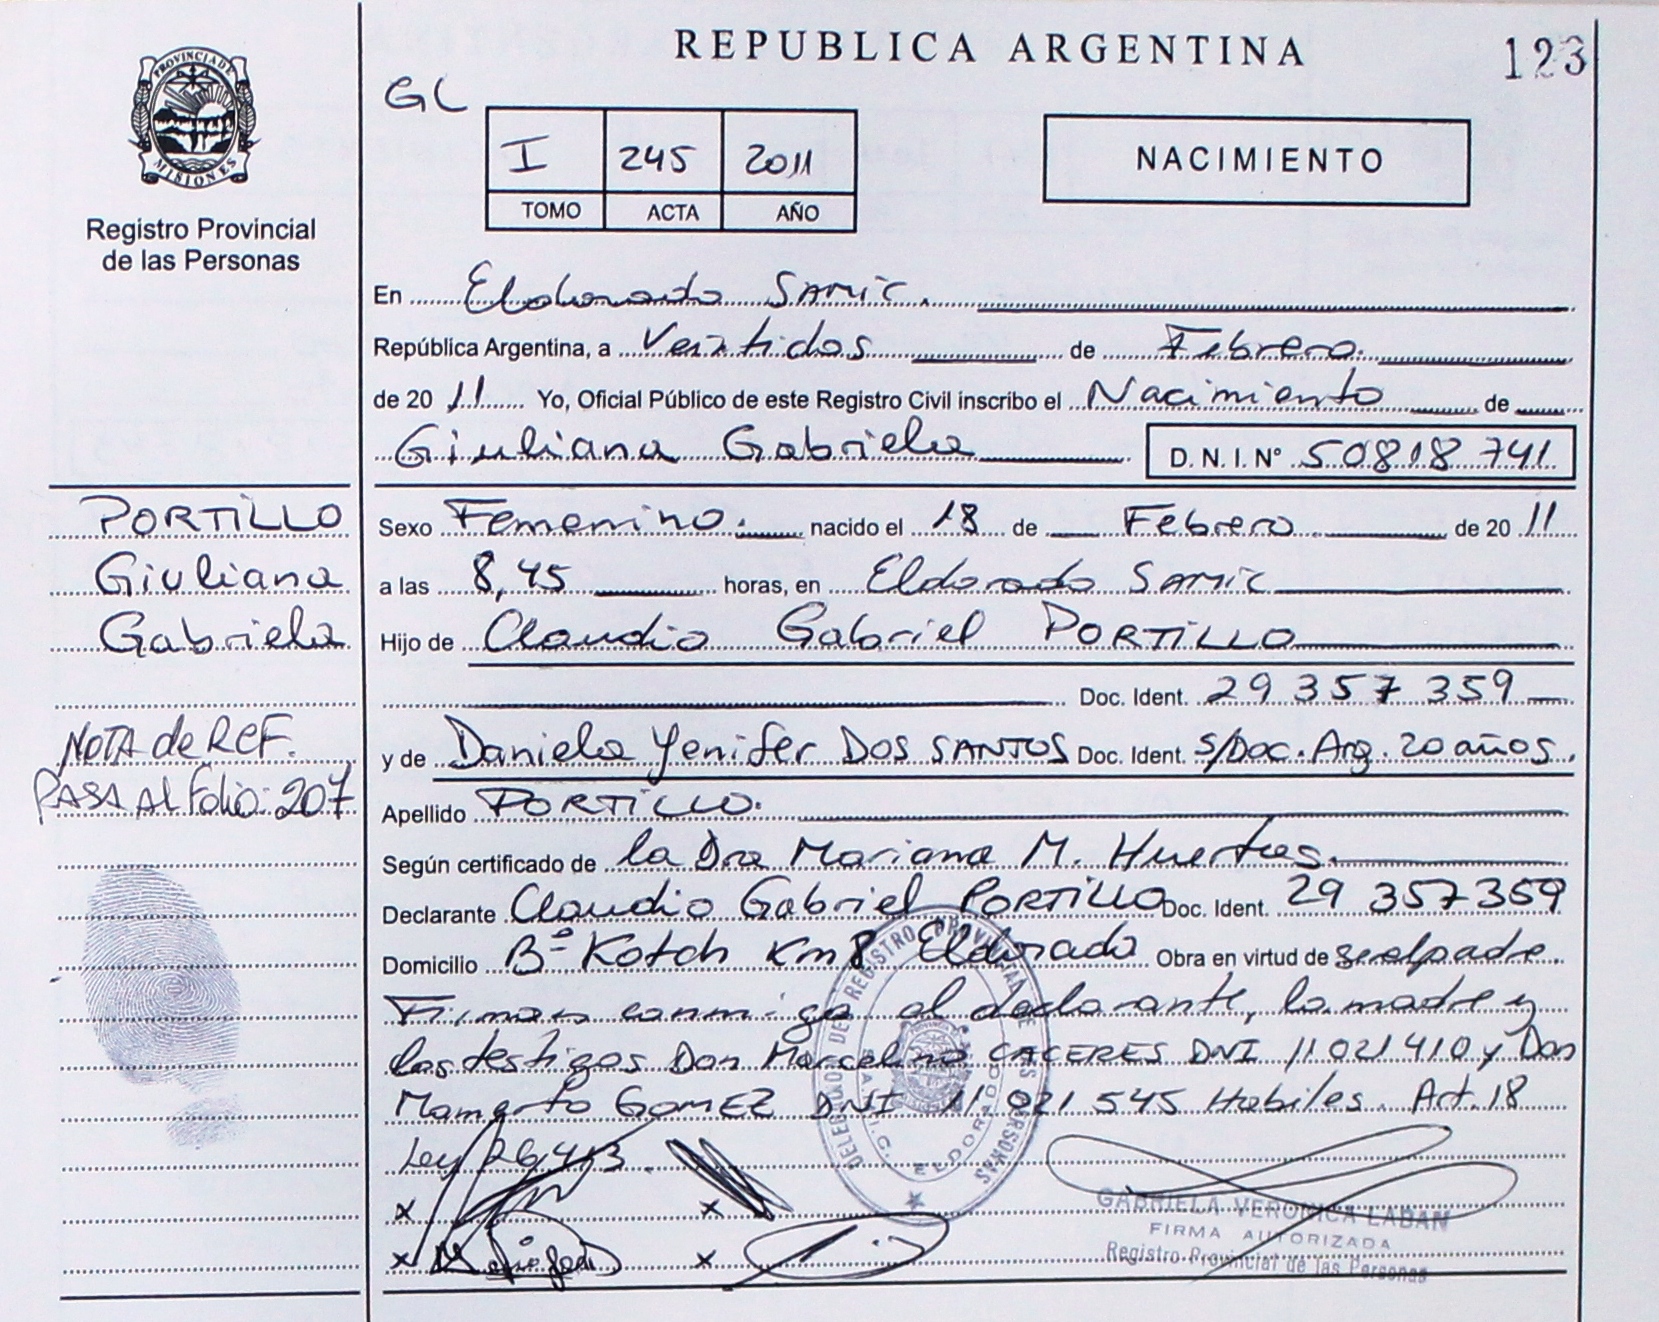 PROVINCIA DE
MISIONES
Registro Provincial
de las Personas
REPUBLICA ARGENTINA
123
GC
I 245 2011
TOMO ACTA AÑO
NACIMIENTO
En Eldorado SAMIC.
República Argentina, a Veintidos de Febrero.
de 20 11 Yo, Oficial Público de este Registro Civil inscribo el Nacimiento de
Giuliana Gabriela D.N.I. Nº 50818741
PORTILLO
Giuliana
Gabriela
NOTA de REF.
PASA Al Folio: 207
Sexo Femenino. nacido el 18 de Febrero de 20 11
a las 8,45 horas, en Eldorado SAMIC
Hijo de Claudio Gabriel PORTILLO
Doc. Ident. 29 357 359
y de Daniela Yenifer DOS SANTOS Doc. Ident. S/Doc. Arg. 20 años.
Apellido PORTILLO.
Según certificado de la Dra Mariana M. Huertas.
Declarante Claudio Gabriel PORTILLO Doc. Ident. 29 357359
Domicilio Bº Kotch Km 8 Eldorado Obra en virtud de ser el padre.
Firman conmigo el declarante, la madre y
los testigos Don Marcelino CACERES DNI 11021410 y Don
Mamerto GOMEZ DNI 11 021 545 Habiles. Art. 18
Ley 26,413.
x x
x x
DELEGADO DEL REGISTRO PROVINCIAL DE LAS PERSONAS
S.A.M.I.C. ELDORADO
GABRIELA VERONICA LABAN
FIRMA AUTORIZADA
Registro Provincial de las Personas